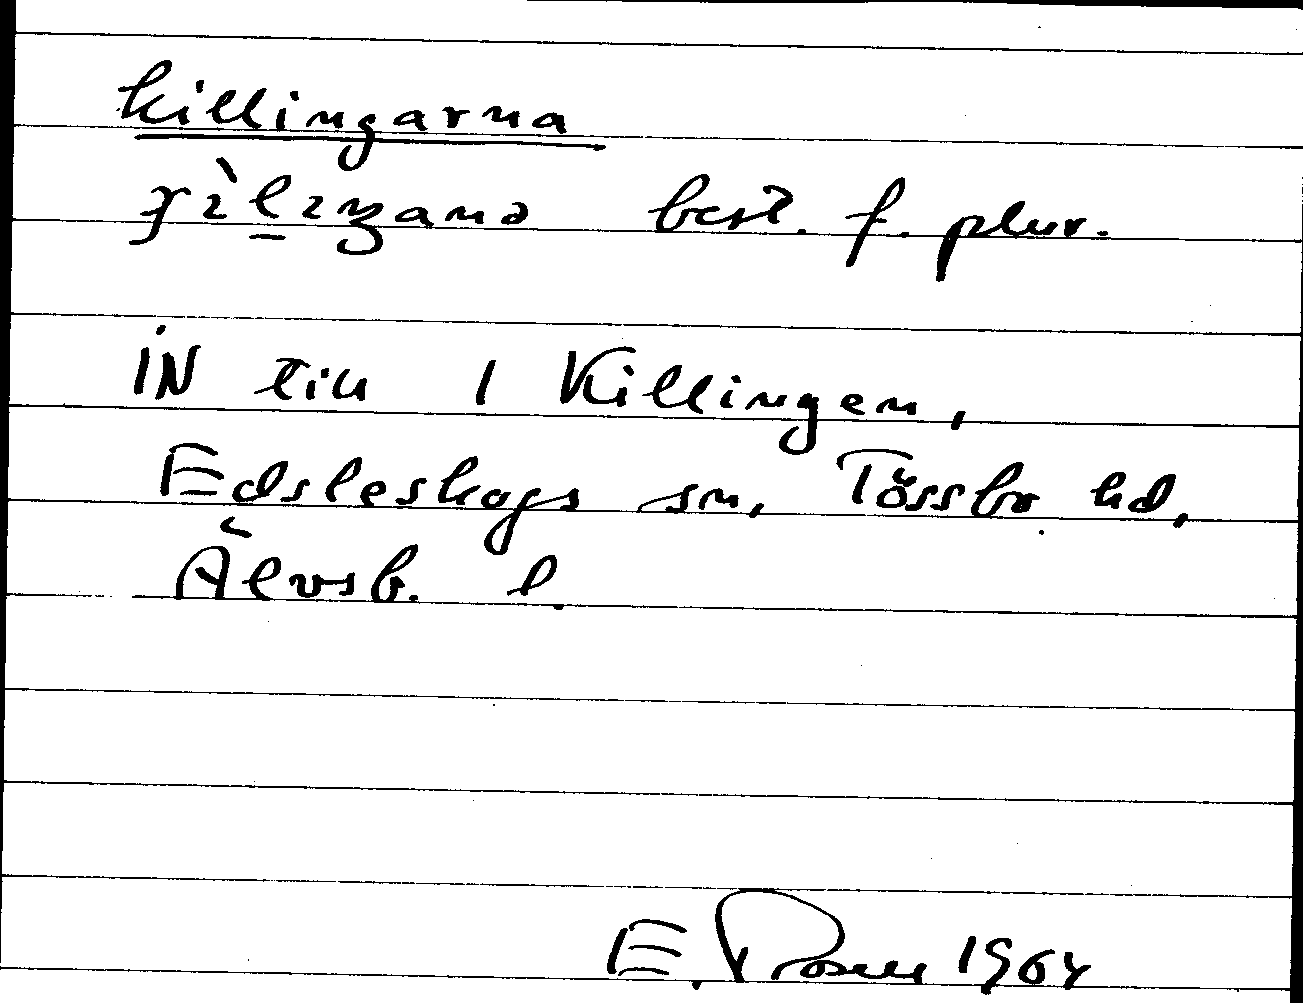 killingarna
best. f. plur.
IN till 1 Killingen,
Edsleskogs sn, Tössbo hd,
Älvsb. l.
E. Rosell 1964